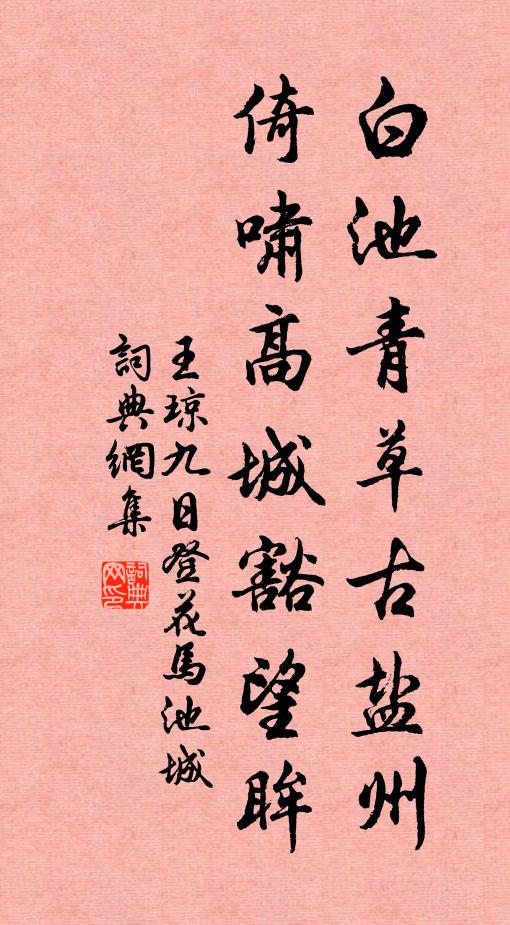 白池青草古盐州
倚啸高城豁望眸
王琼九日登花馬池城
詞典網集
詞典網印